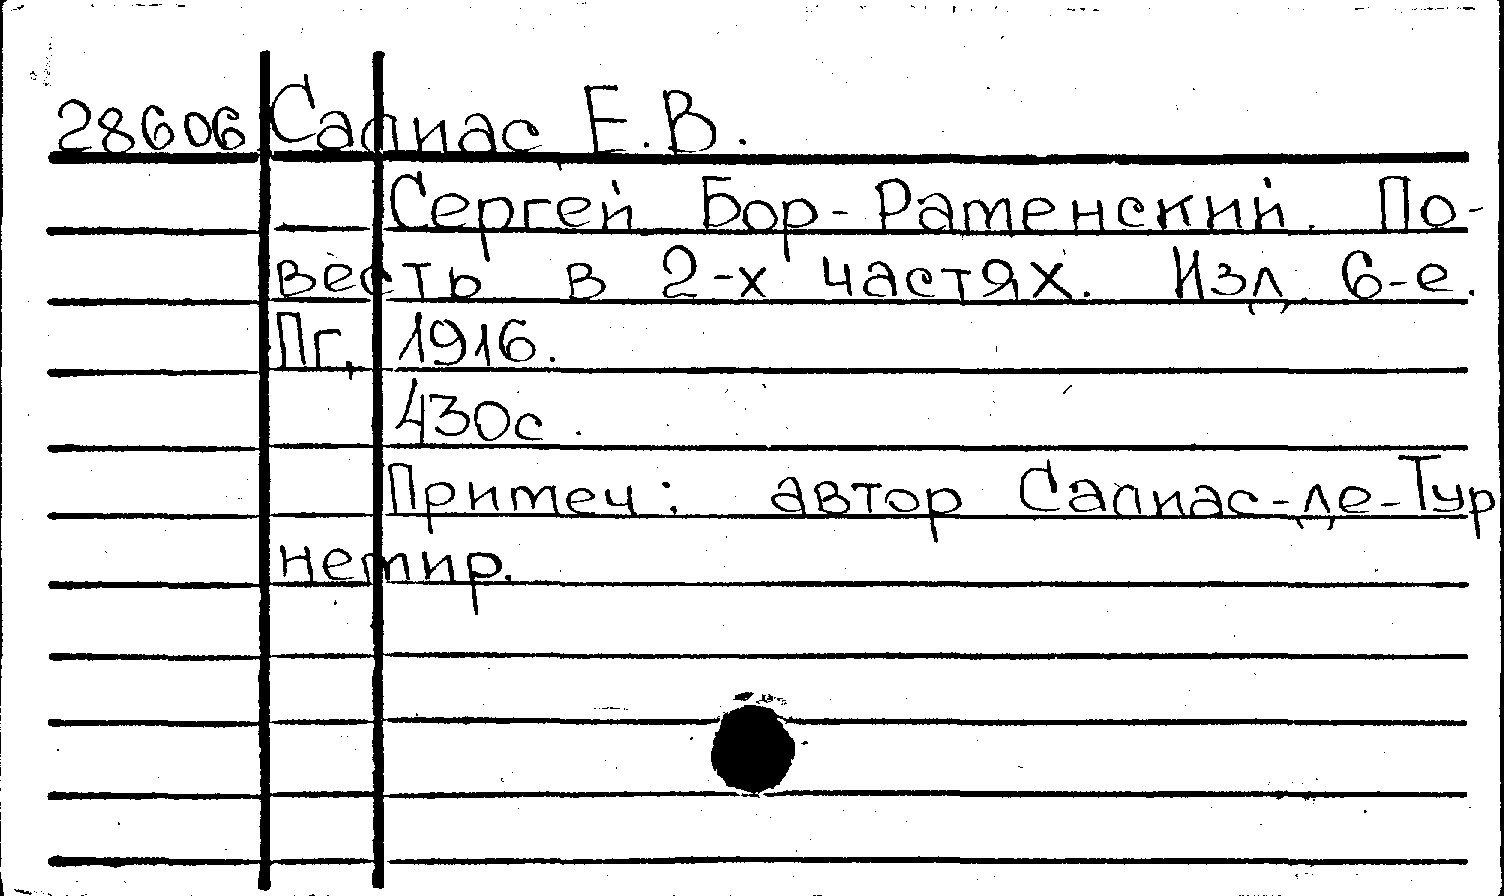 28606 Салиас Е.В.
Сергей Бор-Раменский. По-
весть в 2-х частях. Изд. 6-е.
Пг., 1916.
430с.
Примеч: автор Салиас-де-Тур
немир.